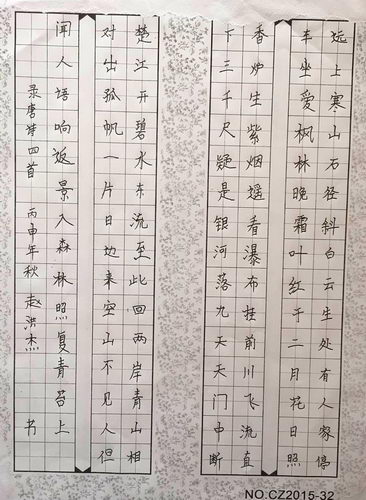 远上寒山石径斜白云生处有人家停
车坐爱枫林晚霜叶红于二月花日照
香炉生紫烟遥看瀑布挂前川飞流直
下三千尺疑是银河落九天天门中断
楚江开碧水东流至此回两岸青山相
对出孤帆一片日边来空山不见人但
闻人语响返景入森林照复青苔上
录唐诗四首 丙申年秋 赵洪杰 书
NO.CZ2015-32